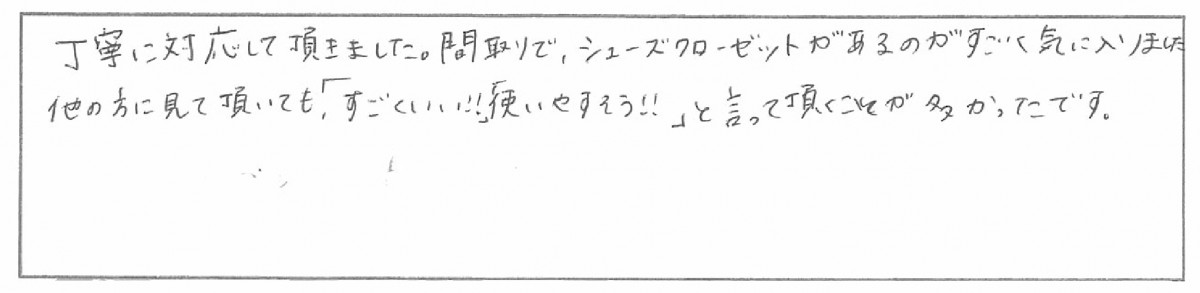 丁寧に対応して頂きました。間取りで、シューズクローゼットがあるのがすごく気に入りました
他の方に見て頂いても、「すごくいい!!」「使いやすそう!!」と言って頂くことが多かったです。